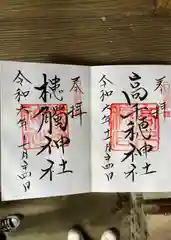 奉拝
高千穂神社
令和六年十一月十四日
奉拝
槵觸神社
令和六年十一月十四日